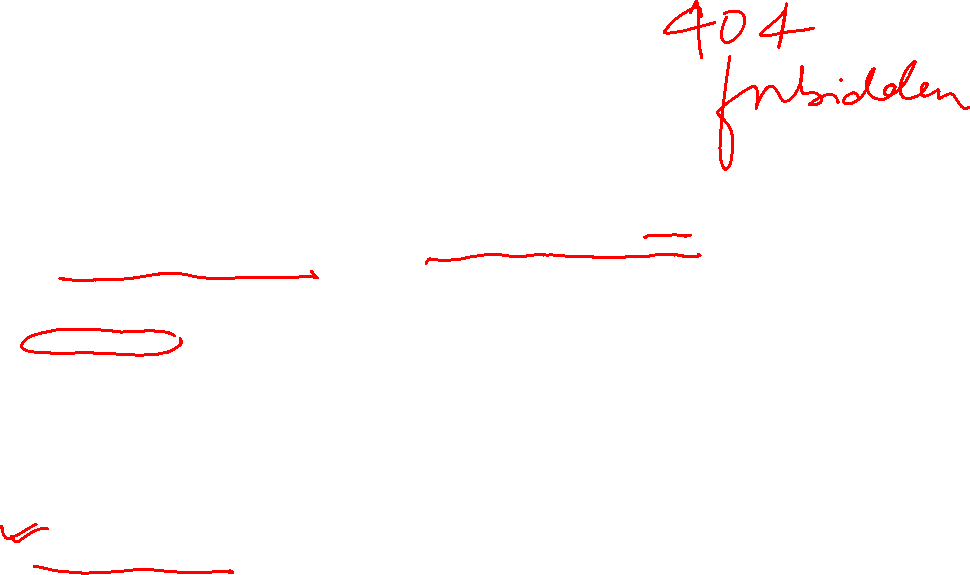 404
forbidden